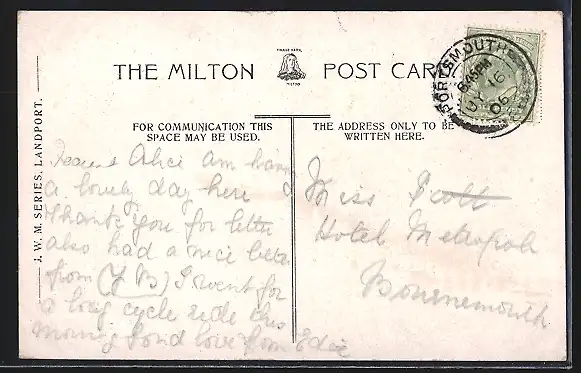 TRADE MARK
THE MILTON POST CARD
MILTON
J. W. M. SERIES, LANDPORT.
FOR COMMUNICATION THIS
SPACE MAY BE USED.
THE ADDRESS ONLY TO BE
WRITTEN HERE.
PORTSMOUTH
6.45PM
JY 16
06
Dearest Alice am having
a lovely day here &
thank you for letter
also had a nice letter
from (Y B) I went for
a long cycle ride this
morning fond love from Edie
Miss Scott
Hotel Metropole
Bournemouth